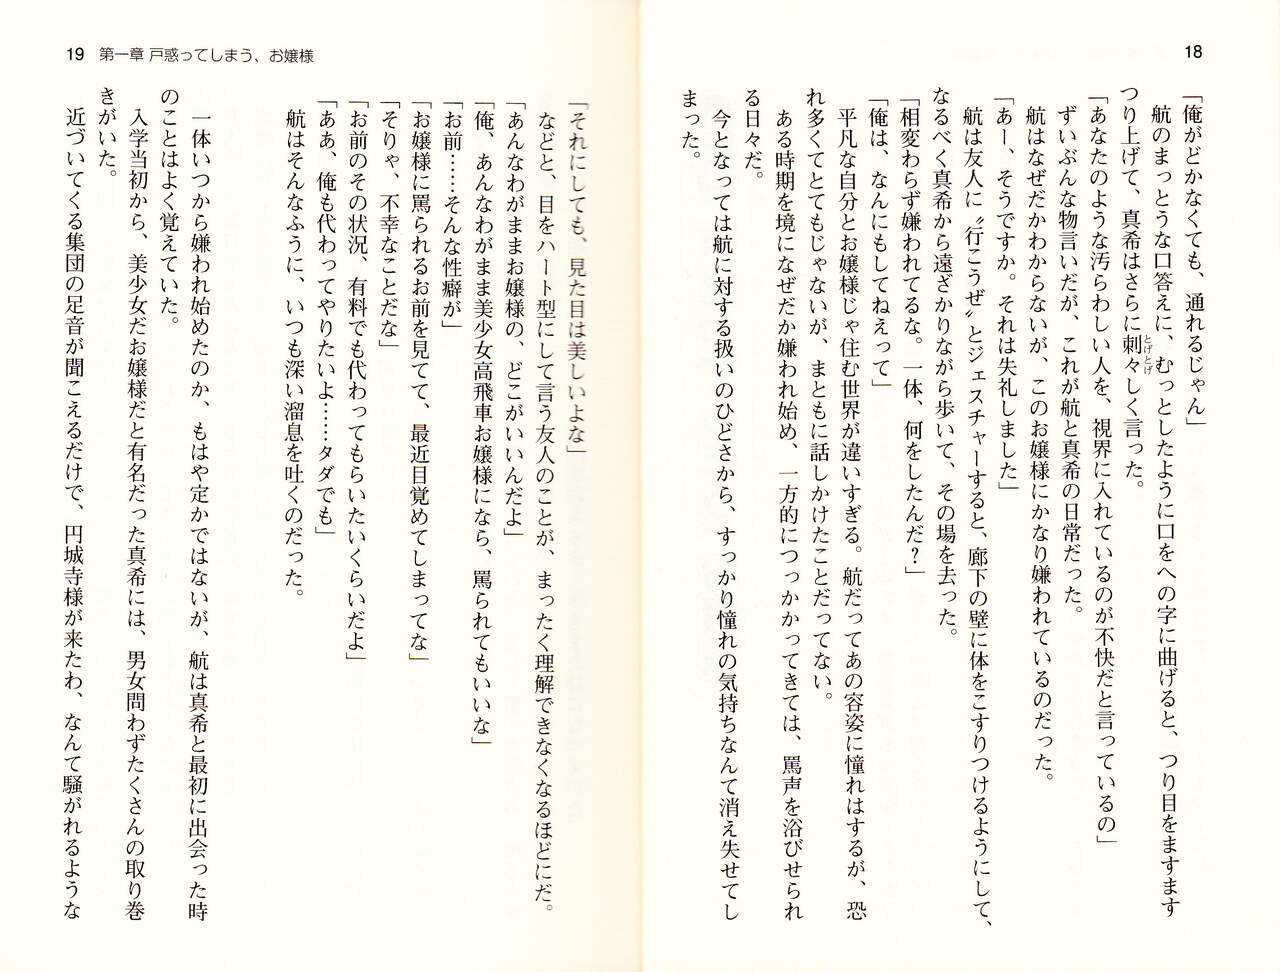 18
「俺がどかなくても、通れるじゃん」
航のまっとうな口答えに、むっとしたように口をへの字に曲げると、つり目をますます
つり上げて、真希はさらに刺々しく言った。
とげとげ
「あなたのような汚らわしい人を、視界に入れているのが不快だと言っているの」
ずいぶんな物言いだが、これが航と真希の日常だった。
航はなぜだかわからないが、このお嬢様にかなり嫌われているのだった。
「あー、そうですか。それは失礼しました」
航は友人に〝行こうぜ〟とジェスチャーすると、廊下の壁に体をこすりつけるようにして、
なるべく真希から遠ざかりながら歩いて、その場を去った。
「相変わらず嫌われてるな。一体、何をしたんだ？」
「俺は、なんにもしてねえって」
平凡な自分とお嬢様じゃ住む世界が違いすぎる。航だってあの容姿に憧れはするが、恐
れ多くてとてもじゃないが、まともに話しかけたことだってない。
ある時期を境になぜだか嫌われ始め、一方的につっかかってきては、罵声を浴びせられ
る日々だ。
今となっては航に対する扱いのひどさから、すっかり憧れの気持ちなんて消え失せてし
まった。
19 第一章 戸惑ってしまう、お嬢様
「それにしても、見た目は美しいよな」
などと、目をハート型にして言う友人のことが、まったく理解できなくなるほどにだ。
「あんなわがままお嬢様の、どこがいいんだよ」
「俺、あんなわがまま美少女高飛車お嬢様になら、罵られてもいいな」
「お前……そんな性癖が」
「お嬢様に罵られるお前を見てて、最近目覚めてしまってな」
「そりゃ、不幸なことだな」
「お前のその状況、有料でも代わってもらいたいくらいだよ」
「ああ、俺も代わってやりたいよ……タダでも」
航はそんなふうに、いつも深い溜息を吐くのだった。
一体いつから嫌われ始めたのか、もはや定かではないが、航は真希と最初に出会った時
のことはよく覚えていた。
入学当初から、美少女だお嬢様だと有名だった真希には、男女問わずたくさんの取り巻
きがいた。
近づいてくる集団の足音が聞こえるだけで、円城寺様が来たわ、なんて騒がれるような